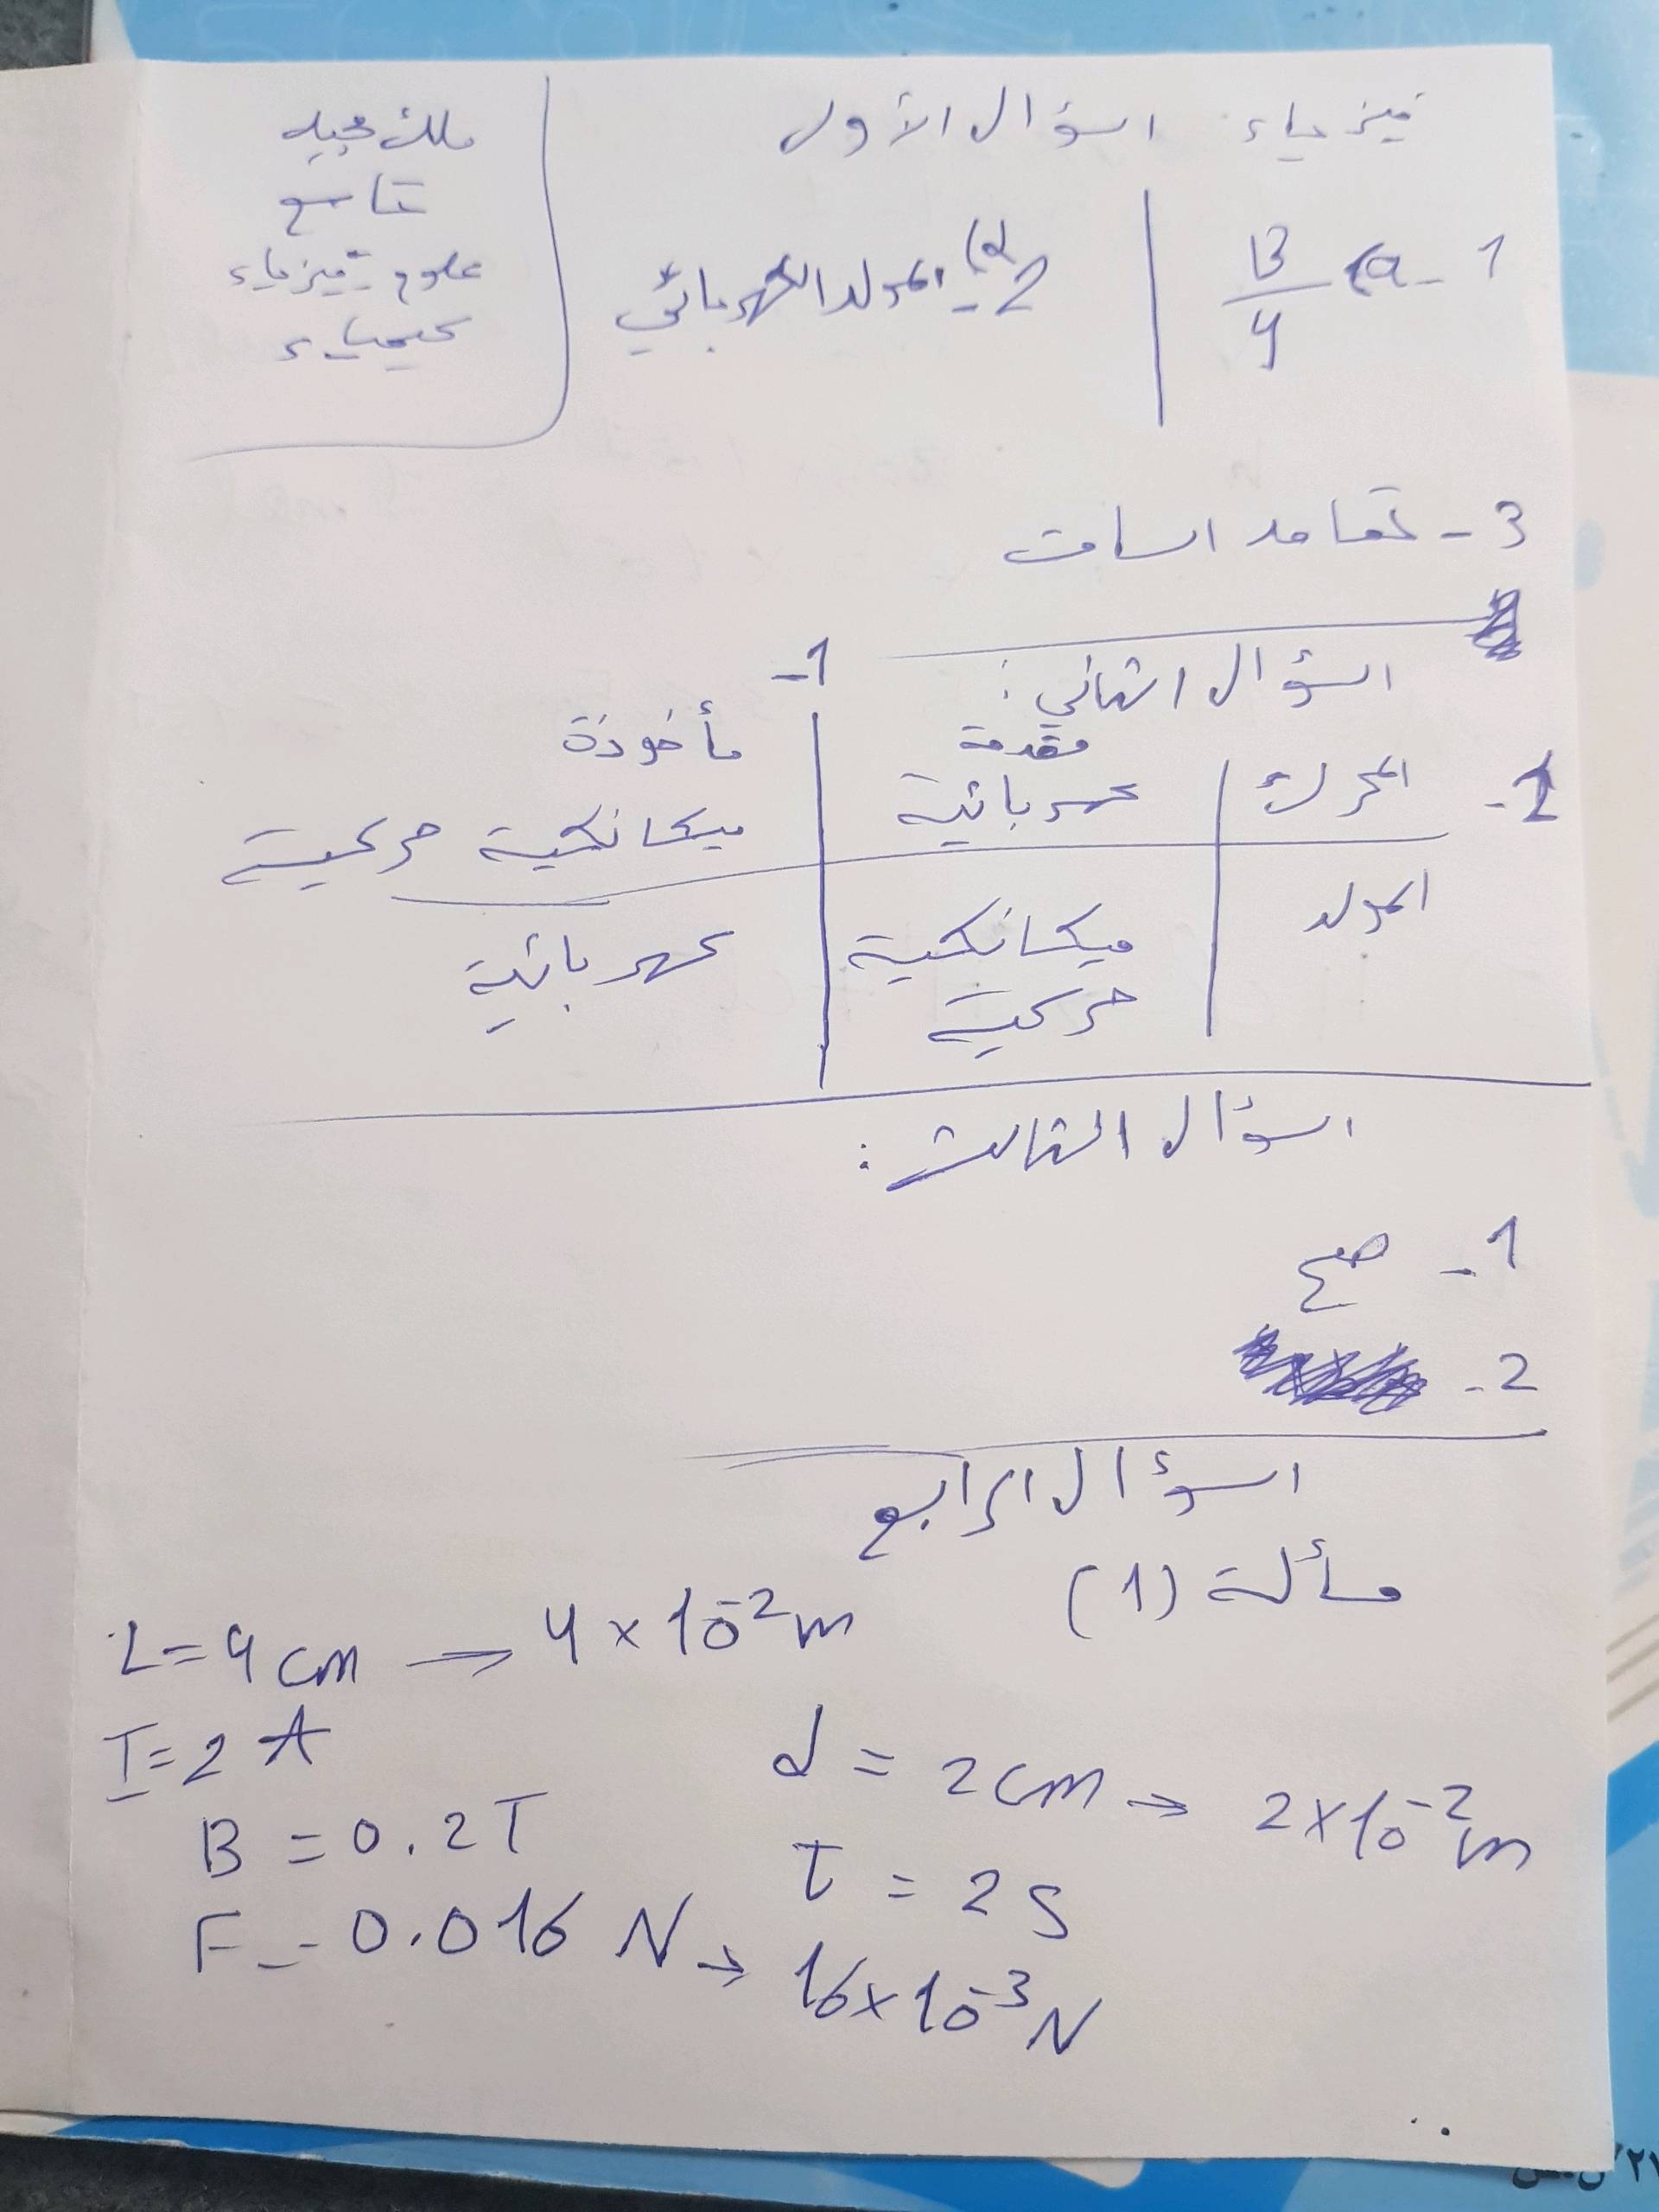 فيزياء اسؤال الأول
ملك عبيد
تاسع
علوم فيزياء
كيمياء
1 - a) B/4
2 - d) المولد الكهربائي
3 - تعامد السامت
السؤال الثاني :
1-
مقدمة مأخوذة
1- المحرك كهربائية ميكانكية حركية
المولد ميكانكية حركية كهربائية
اسؤال الثالث :
1 - صح
2 -
اسؤال الرابع
مسألة (1)
L = 4 cm → 4 × 10^-2 m
I = 2 A
d = 2 cm → 2 × 10^-2 m
B = 0.2 T
t = 2 s
F = 0.016 N → 16 × 10^-3 N